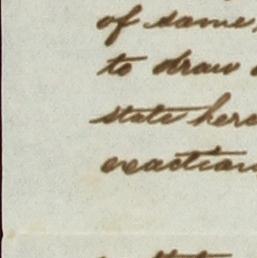 of same,
to draw
state here
exaction